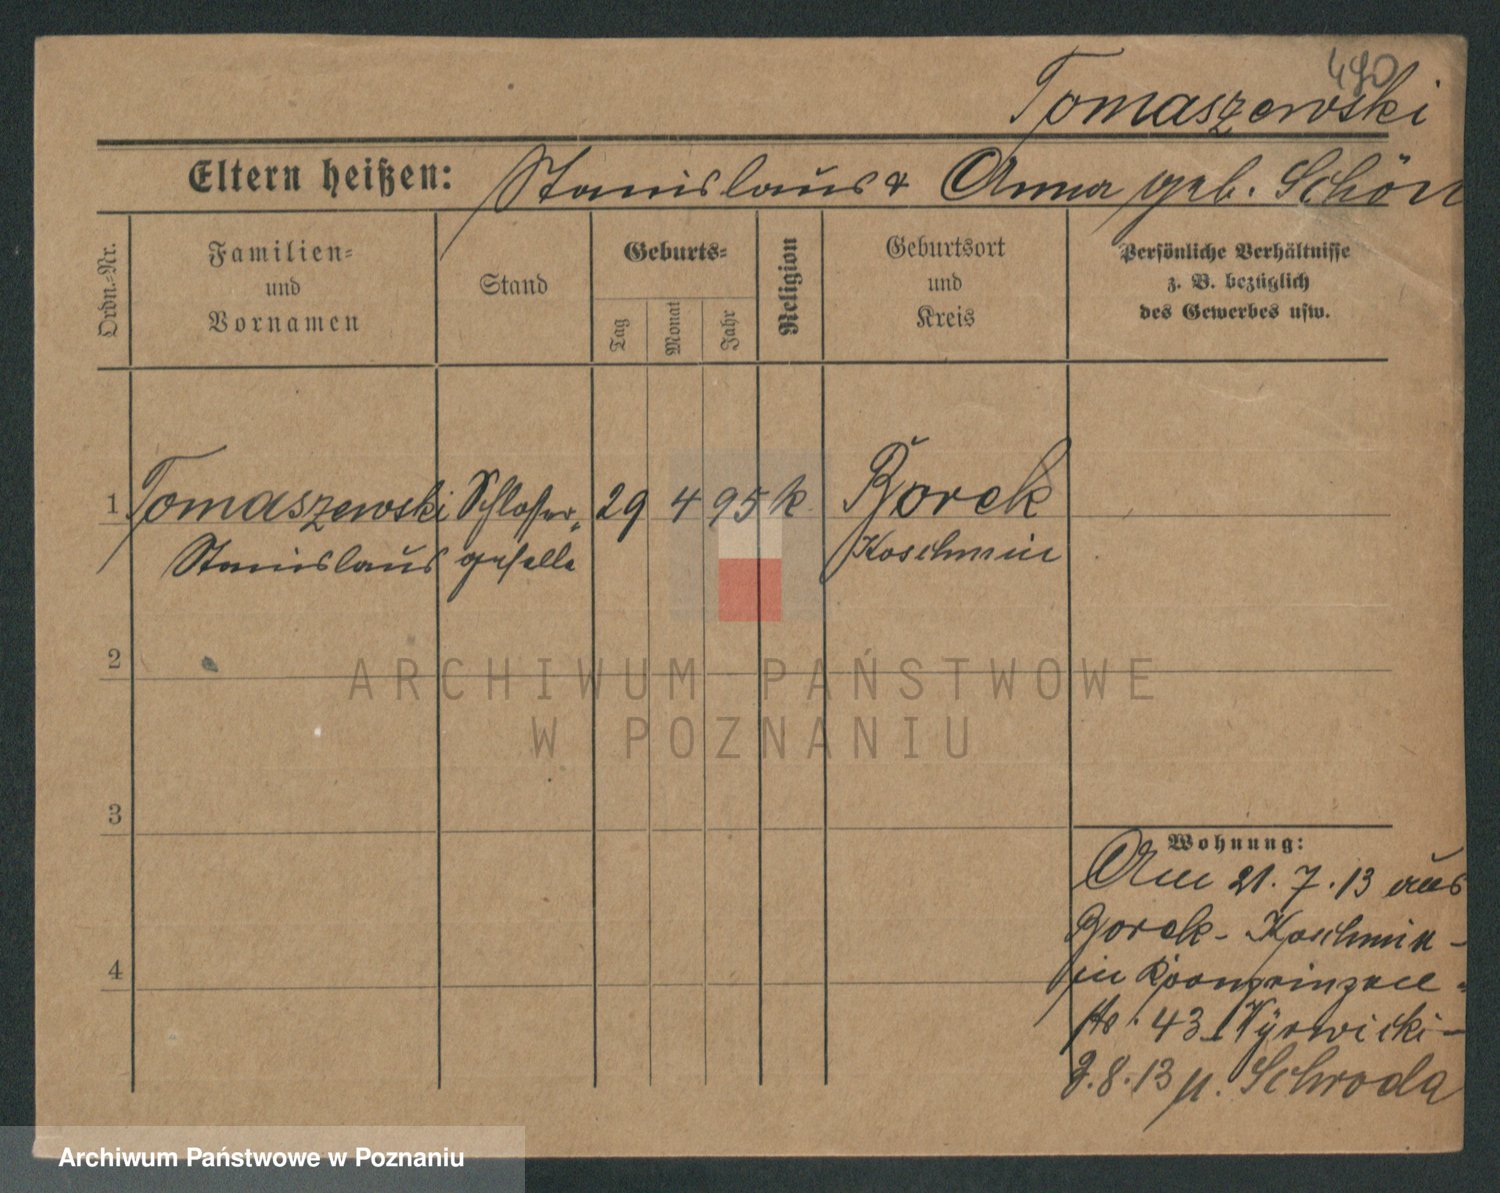 490
Tomaszewski
Eltern heißen: Stanislaus & Anna geb. Schön
Ordn.-Nr.
Familien-
und
Vornamen
Stand
Geburts-
Tag
Monat
Jahr
Religion
Geburtsort
und
Kreis
Persönliche Verhältnisse
z. B. bezüglich
des Gewerbes usw.
1 Tomaszewski Schlosser- 29 4 95 k Borek
Stanislaus geselle Koschmin
2
3
4
Wohnung:
Am 21. 7. 13 aus
Borek - Koschmin -
in Kronprinzen-
str. 43
8. 13 n. Schroda
ARCHIWUM PAŃSTWOWE
W POZNANIU
Archiwum Państwowe w Poznaniu